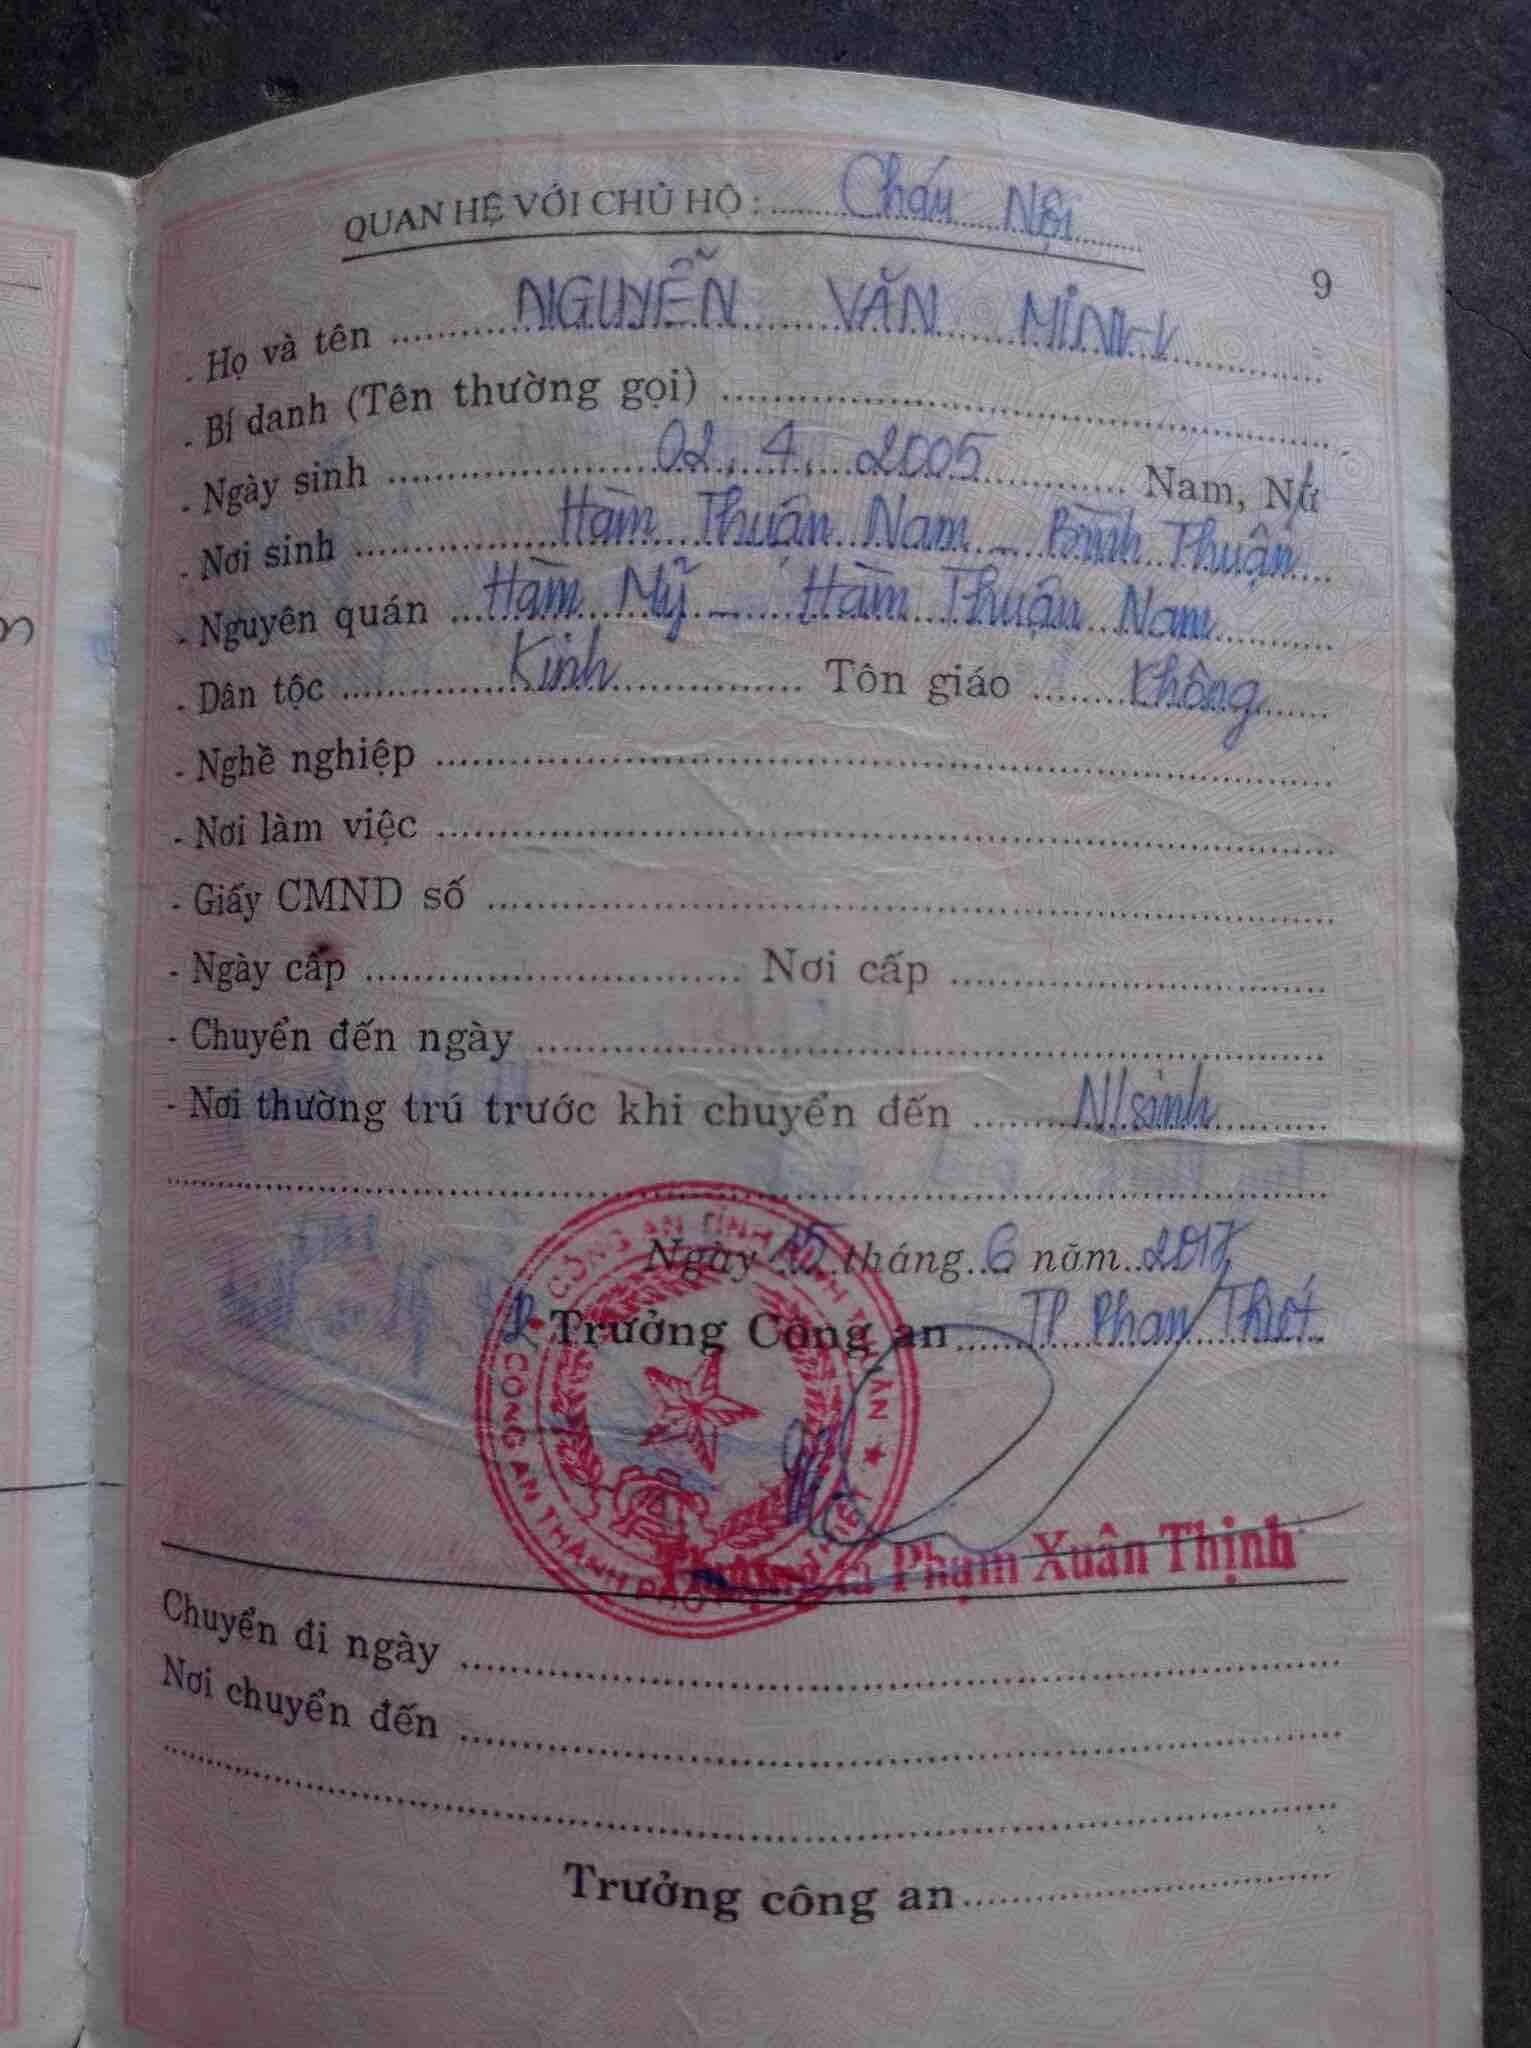 QUAN HỆ VỚI CHỦ HỘ : Cháu Nội
9
- Họ và tên NGUYỄN VĂN MINH
- Bí danh (Tên thường gọi)
- Ngày sinh 02, 4, 2005 Nam, Nữ
- Nơi sinh Hàm Thuận Nam - Bình Thuận
- Nguyên quán Hàm Mỹ - Hàm Thuận Nam
- Dân tộc Kinh Tôn giáo Không
- Nghề nghiệp
- Nơi làm việc
- Giấy CMND số
- Ngày cấp Nơi cấp
- Chuyển đến ngày
- Nơi thường trú trước khi chuyển đến N/sinh
Ngày 15 tháng 6 năm 2017
Trưởng Công an TP Phan Thiết
CÔNG AN TỈNH BÌNH THUẬN
CÔNG AN THÀNH PHỐ
Phạm Xuân Thịnh
Chuyển đi ngày
Nơi chuyển đến
Trưởng công an